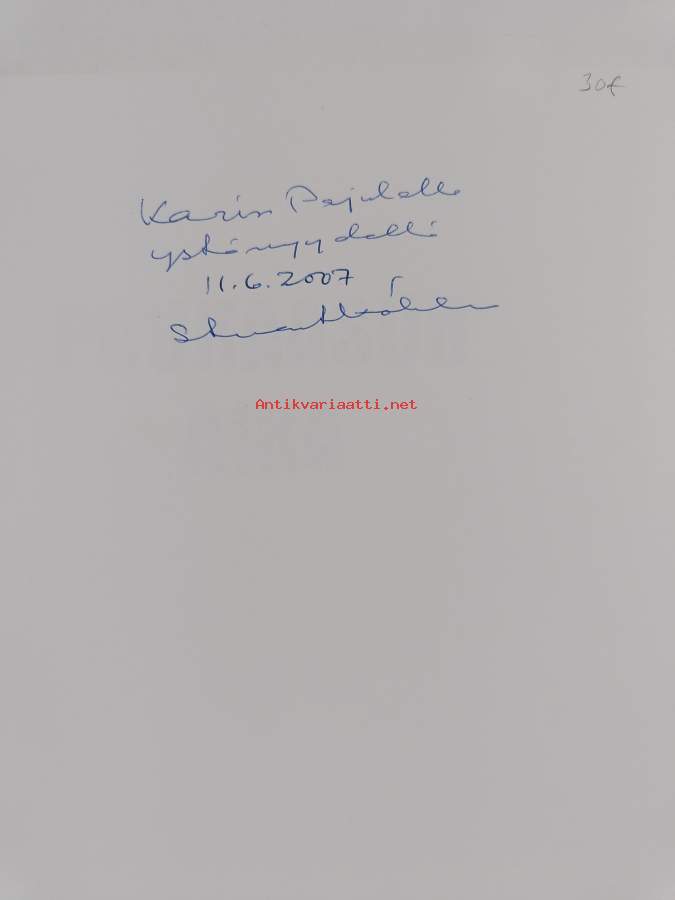 30€
Karin Pajulalle
ystävyydellä
11.6.2007
Antikvariaatti.net